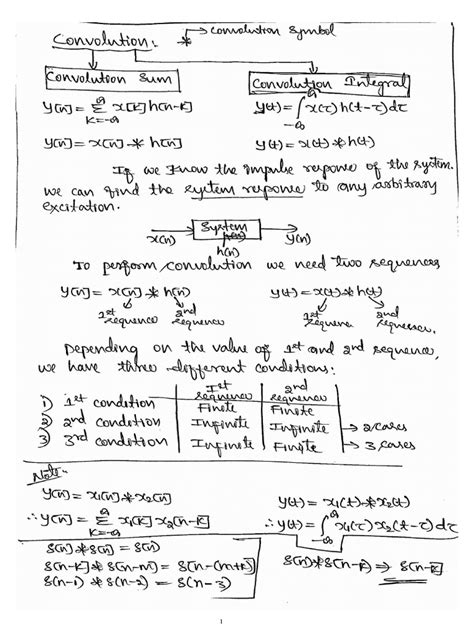 Convolution: * → Convolution Symbol
Convolution Sum
Convolution Integral
y[n] = ∞ Σ k=-∞ x[k] h[n-k]
y(t) = ∫ ∞ -∞ x(τ) h(t-τ) dτ
y[n] = x[n] * h[n]
y(t) = x(t) * h(t)
If we know the impulse response of the system.
we can find the system response to any arbitrary
excitation.
x(n) → System → y(n)
h(n)
To perform convolution we need two sequences
y[n] = x(n) * h(n)
y(t) = x(t) * h(t)
1st sequence 2nd sequence
1st sequence 2nd sequence.
Depending on the value of 1st and 2nd sequence,
we have three different conditions:
Ist sequence 2nd sequence
1) 1st condition Finite Finite
2) 2nd condition Infinite Infinite → 2 cases
3) 3rd condition Infinite Finite → 3 cases
Note:-
y[n] = x1[n] * x2[n]
y(t) = x1(t) * x2(t)
∴ y[n] = ∞ Σ k=-∞ x1[k] x2[n-k]
∴ y(t) = ∫ ∞ -∞ x1(τ) x2(t-τ) dτ
δ(n) * δ(n) = δ(n)
δ(n-k) * δ(n-m) = δ(n-(m+k))
δ(n-1) * δ(n-2) = δ(n-3)
δ(n) * δ(n-k) ⇒ δ(n-k)
1